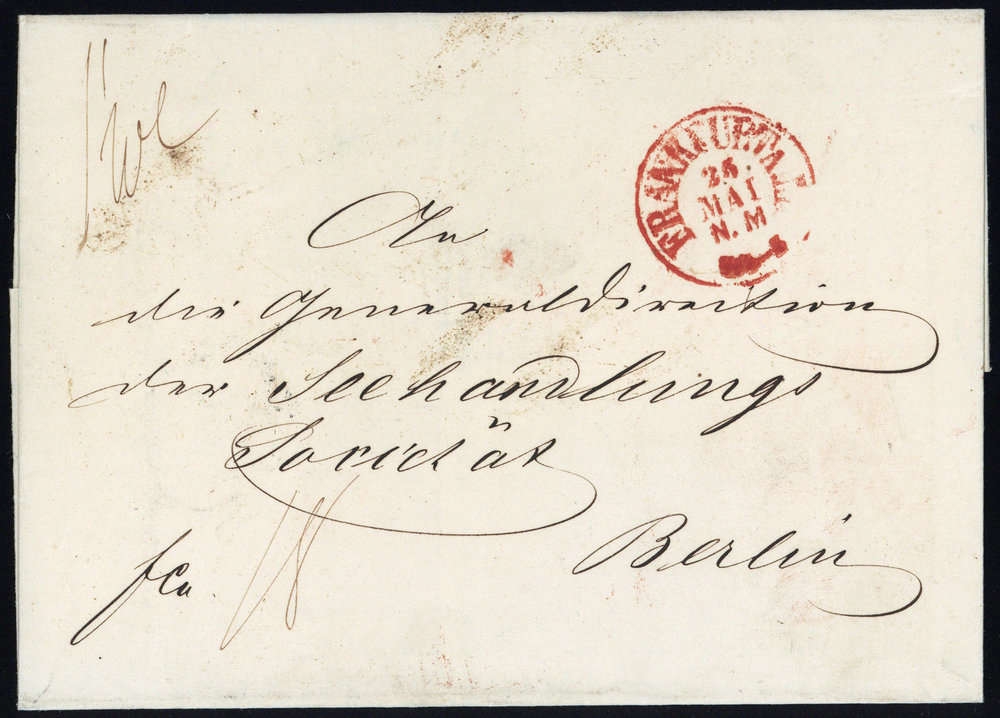 FRANKFURT A.
25.
MAI
N. M
An
die Generaldirection
der Seehandlungs
Societät
Berlin
fco.